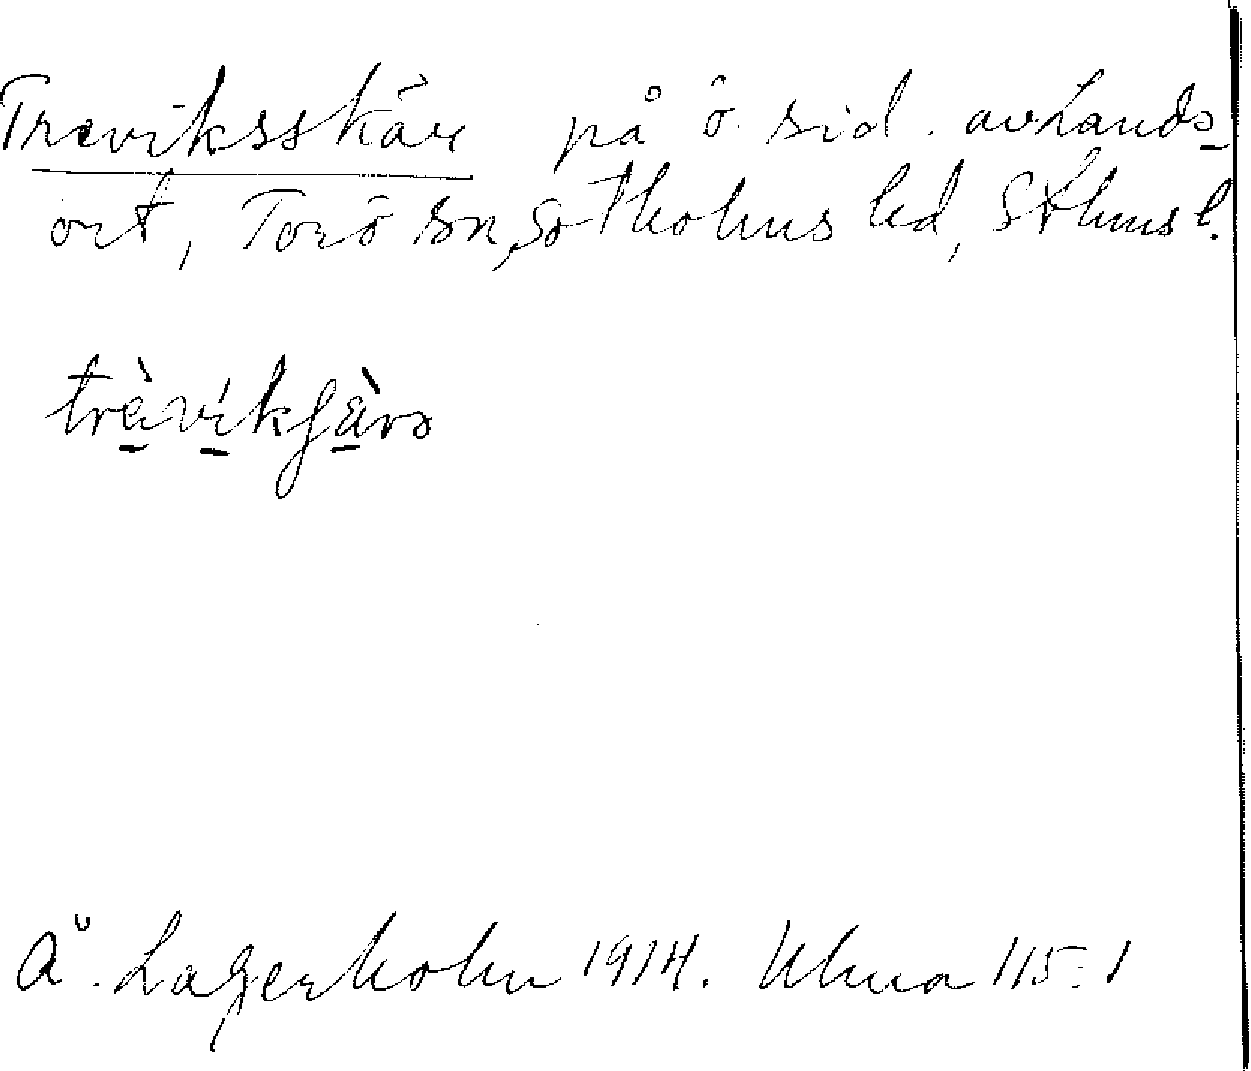 Treviksskär på ö. sid. av Lands-
ort, Torö sn, Sotholms hd, Sthms l.
trèvíkʃàrə
Å. Lagerholm 1914. Uhua 115:1